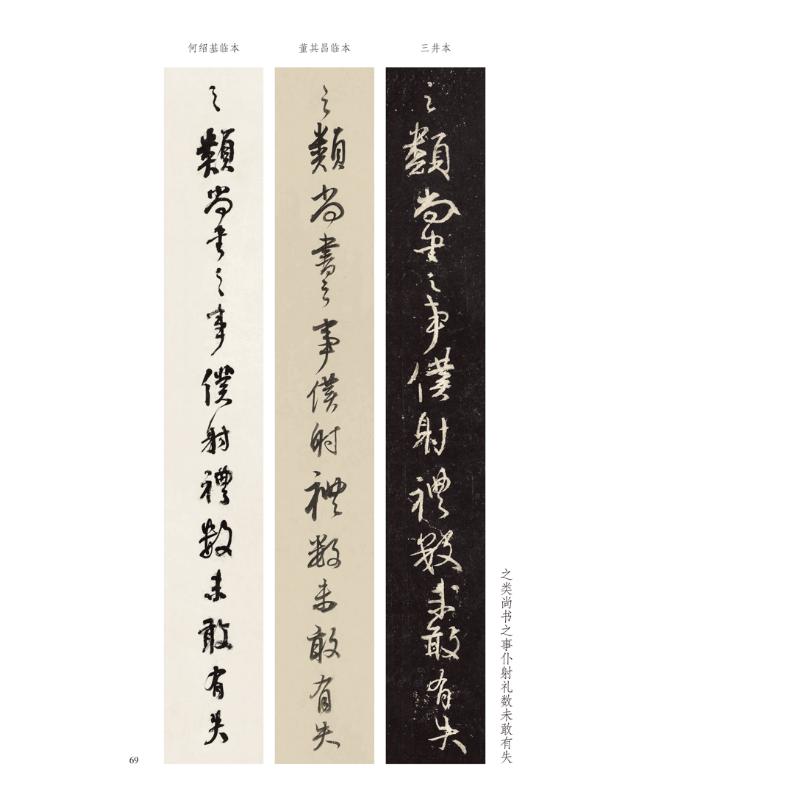 何绍基临本
董其昌临本
三井本
之類尚書之事僕射禮數未敢有失
之類尚書之事僕射禮數未敢有失
之類尚書之事僕射禮數未敢有失
之类尚书之事仆射礼数未敢有失
69